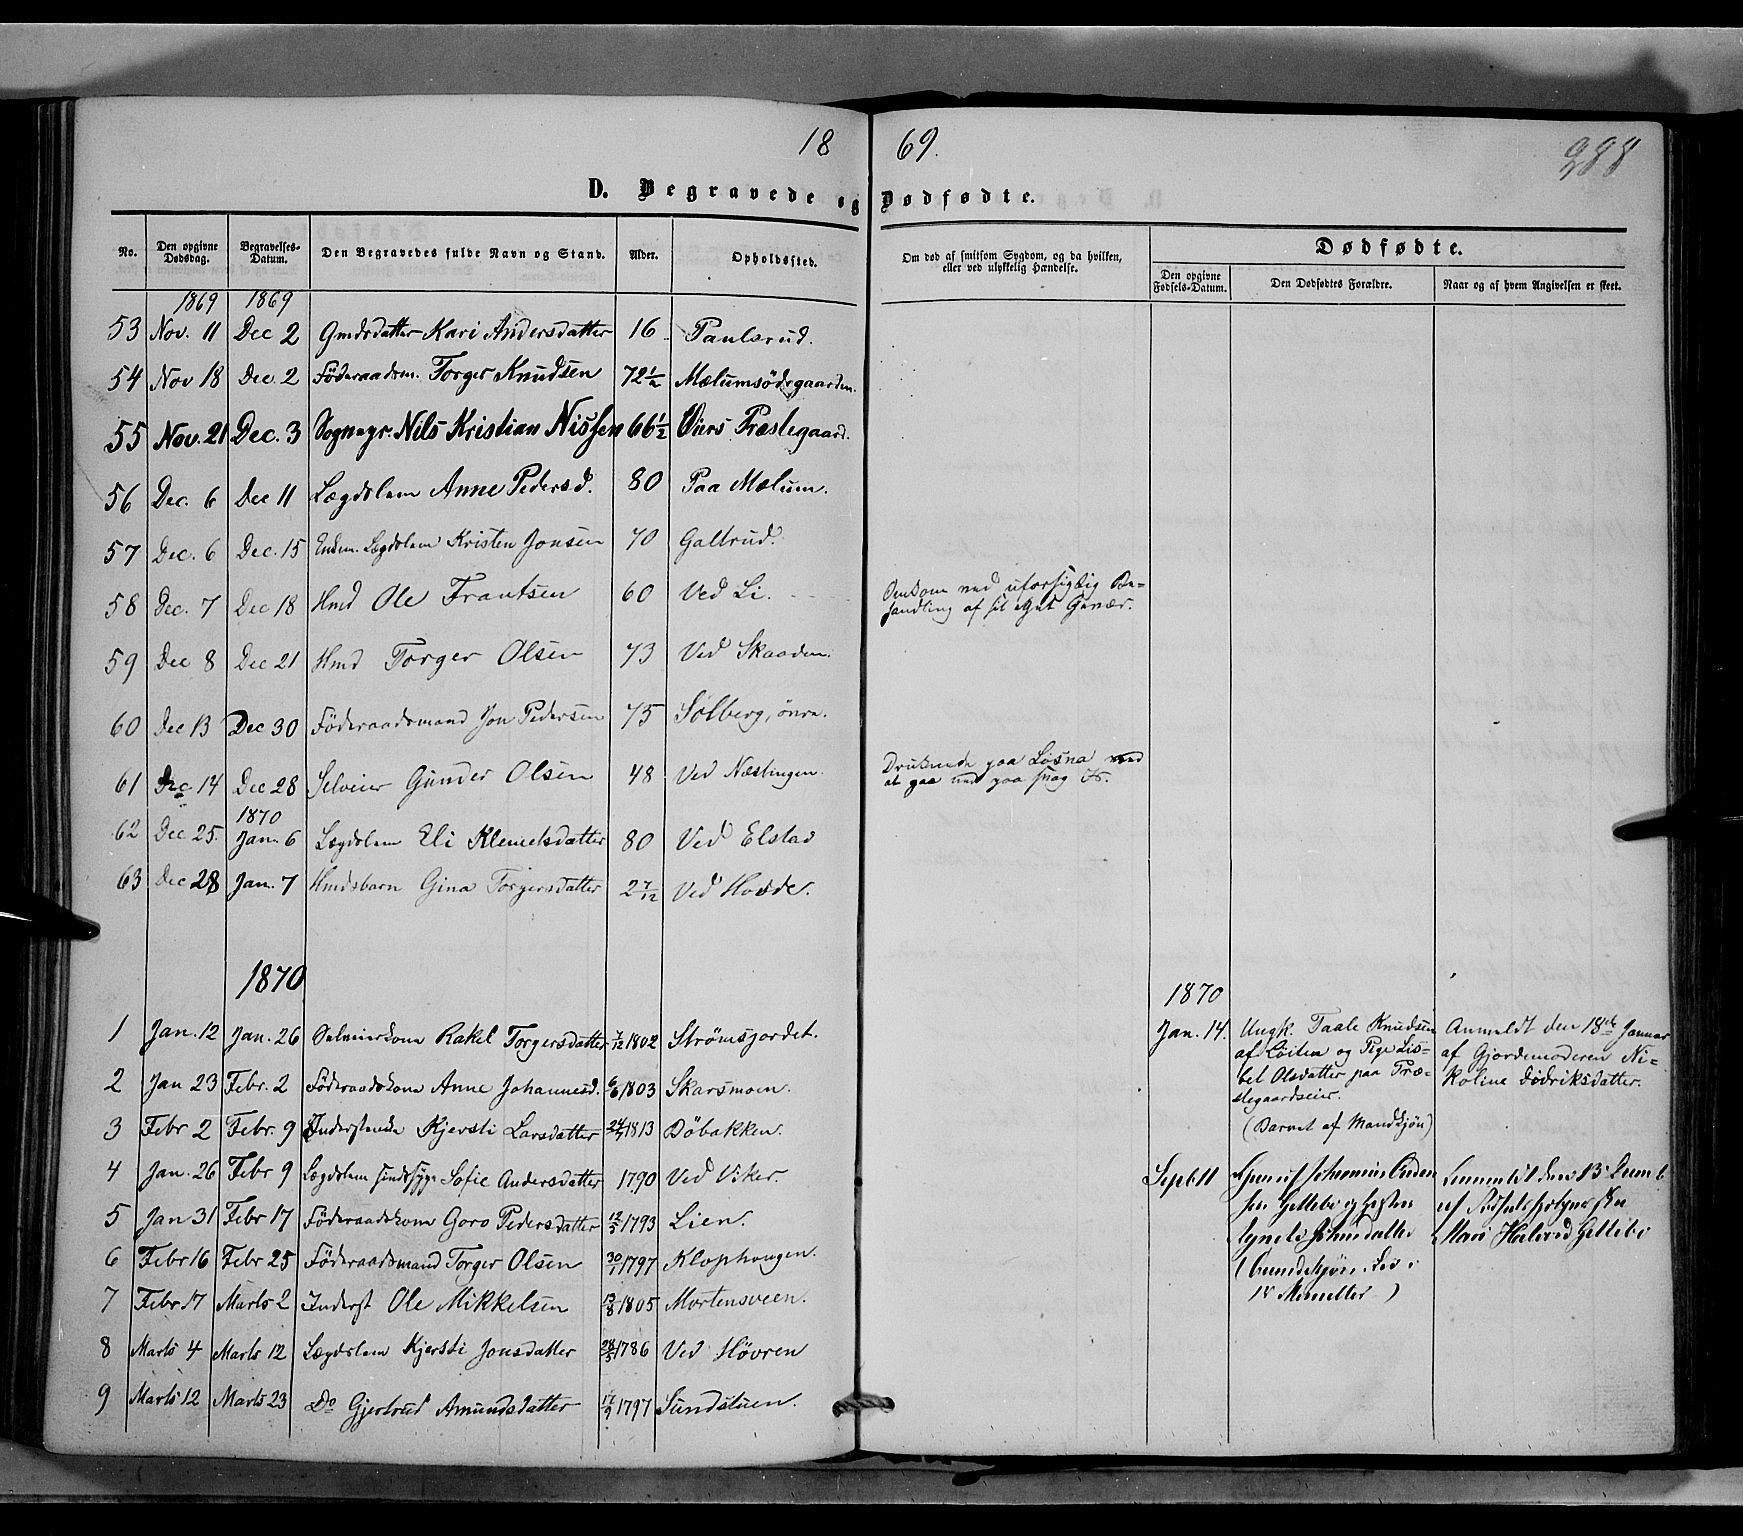 18 69. 288
D. Begravede og Dødfødte.
No. Den opgivne Dødsdag. Begravelses-Datum. Den Begravedes fulde Navn og Stand. Alder. Opholdssted. Om død af smitsom Sygdom, og da hvilken, eller ved ulykkelig Hændelse. Dødfødte.
Den opgivne Fødsels-Datum. Den Dødfødtes Forældre. Naar og af hvem Angivelsen er skeet.
1869 1869
53 Nov. 11 Dec 2 Gmdsdatter Kari Andersdatter 16 Paulsrud.
54 Nov 18 Dec. 2 Föderaadsm. Torger Knudsen 72 1/2 Mælumsödegaarden.
55 Nov. 21 Dec. 3 Sognepr. Nils Kristian Nissen 66 1/2 Öiers Præstegaard.
56 Dec. 6 Dec 11 Lægdslem Anne Pedersd. 80 Paa Mælum.
57 Dec. 6 Dec. 15 Enkem. Lægdslem Kristen Jonsen 70 Galtrud.
58 Dec. 7 Dec 18 Hmd Ole Frantsen 60 Ved Li. Omkom ved uforsigtig Be-
handling af sit eget Gevær.
59 Dec 8 Dec 21 Hmd Torger Olsen 73 Ved Skaaden.
60 Dec 13 Dec 30 Föderaadsmand Jon Pedersen 75 Solberg, övre.
61 Dec 14 Dec 28 Selveier Gunder Olsen 48 Ved Næslingen. Druknede paa Losna ved
at gaa ned paa svag Is.
1870
62 Dec 25. Jan. 6 Lægdslem Eli Klemetsdatter 80 Ved Elstad
63 Dec 28 Jan. 7 Hmdsbarn Gina Torgersdatter 2 7/12 Ved Hovde.
1870 1870
1 Jan. 12 Jan. 26 Selveierkone Rakel Torgersdatter 7/12 1802 Strömsjordet. Jan. 14. Ungk. Taale Knudsen Anmeldt den 18de Januar
af Löiten og Pige Lis- af Gjordemoderen Ni-
2 Jan 23 Febr. 2 Föderaadskone Anne Johannesd. 6/6 1803 Skarsmoen. bet Olsdatter paa Præ- koline Didriksdatter.
stegaardseier.
3 Febr 2 Febr. 9 Inderstenke Kjersti Larsdatter 24/7 1813 Döbakken. (Barnet af Mandkjön)
4 Jan. 26 Febr 9 Lægdslem sindssyge Sofie Andersdatter 1790 Ved Viker. Sept. 11 Johannes Anmeldt den 13
5 Jan 31 Febr 17 Föderaadskone Goro Pedersdatter 12/5 1793 Lien. Gillebo og af
6 Febr 16 Febr 25 Föderaadsmand Torger Olsen 30/1 1797 Klophaugen. Agnete Johnsdatter
7 Febr 17 Marts 2 Inderst Ole Mikkelsen 13/8 1805 Mortensveen. 18 Minutter)
8 Marts 4 Marts 12 Lægdslem Kjersti Jonsdatter 28/5 1786 Ved Hövren
9 Marts 12 Marts 23 Do Gjertrud Amundsdatter 17/9 1797 Sundstuen.